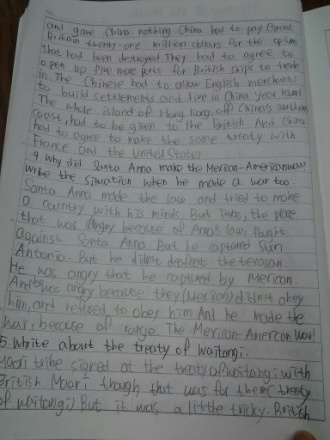 and gave China nothing China had to pay Great
Britain twenty-one million dollars for the opium
that had been destroyed They had to agree to
open up five more ports for British ships to trade
in. The Chinese had to allow English merchants
to build settlements and live in China year round
The whole island of Hong Kong, off China's southern
coast, had to be given to the British And China
had to agree to make the same treaty with
France and the United States
why did Santa Anna make the Mexican-American war
write the situation when he made a war too
Santa Anna made the law and tried to make
a country with his minds. But Texas, the place
that was angry because of Anna's law, fought
against Santa Anna But he captured San
Antonio. But he didn't defeat the
He was angry that he captured by Mexican.
And was angry because they (Mexico) didn't obey
him, and refused to obey him And he made the
war, because of rage. The Mexican-American war!
5. Write about the treaty of waitangi.
Maori tribe signed at the treaty of waitangi with
British Maori though that was for them (treaty
of waitangi) But it was a little tricky. British